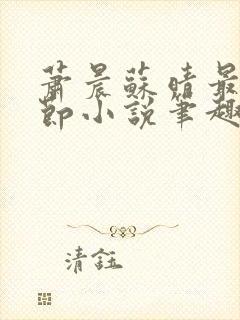 蕭晨蘇晴最
節小說筆趣
清鈺